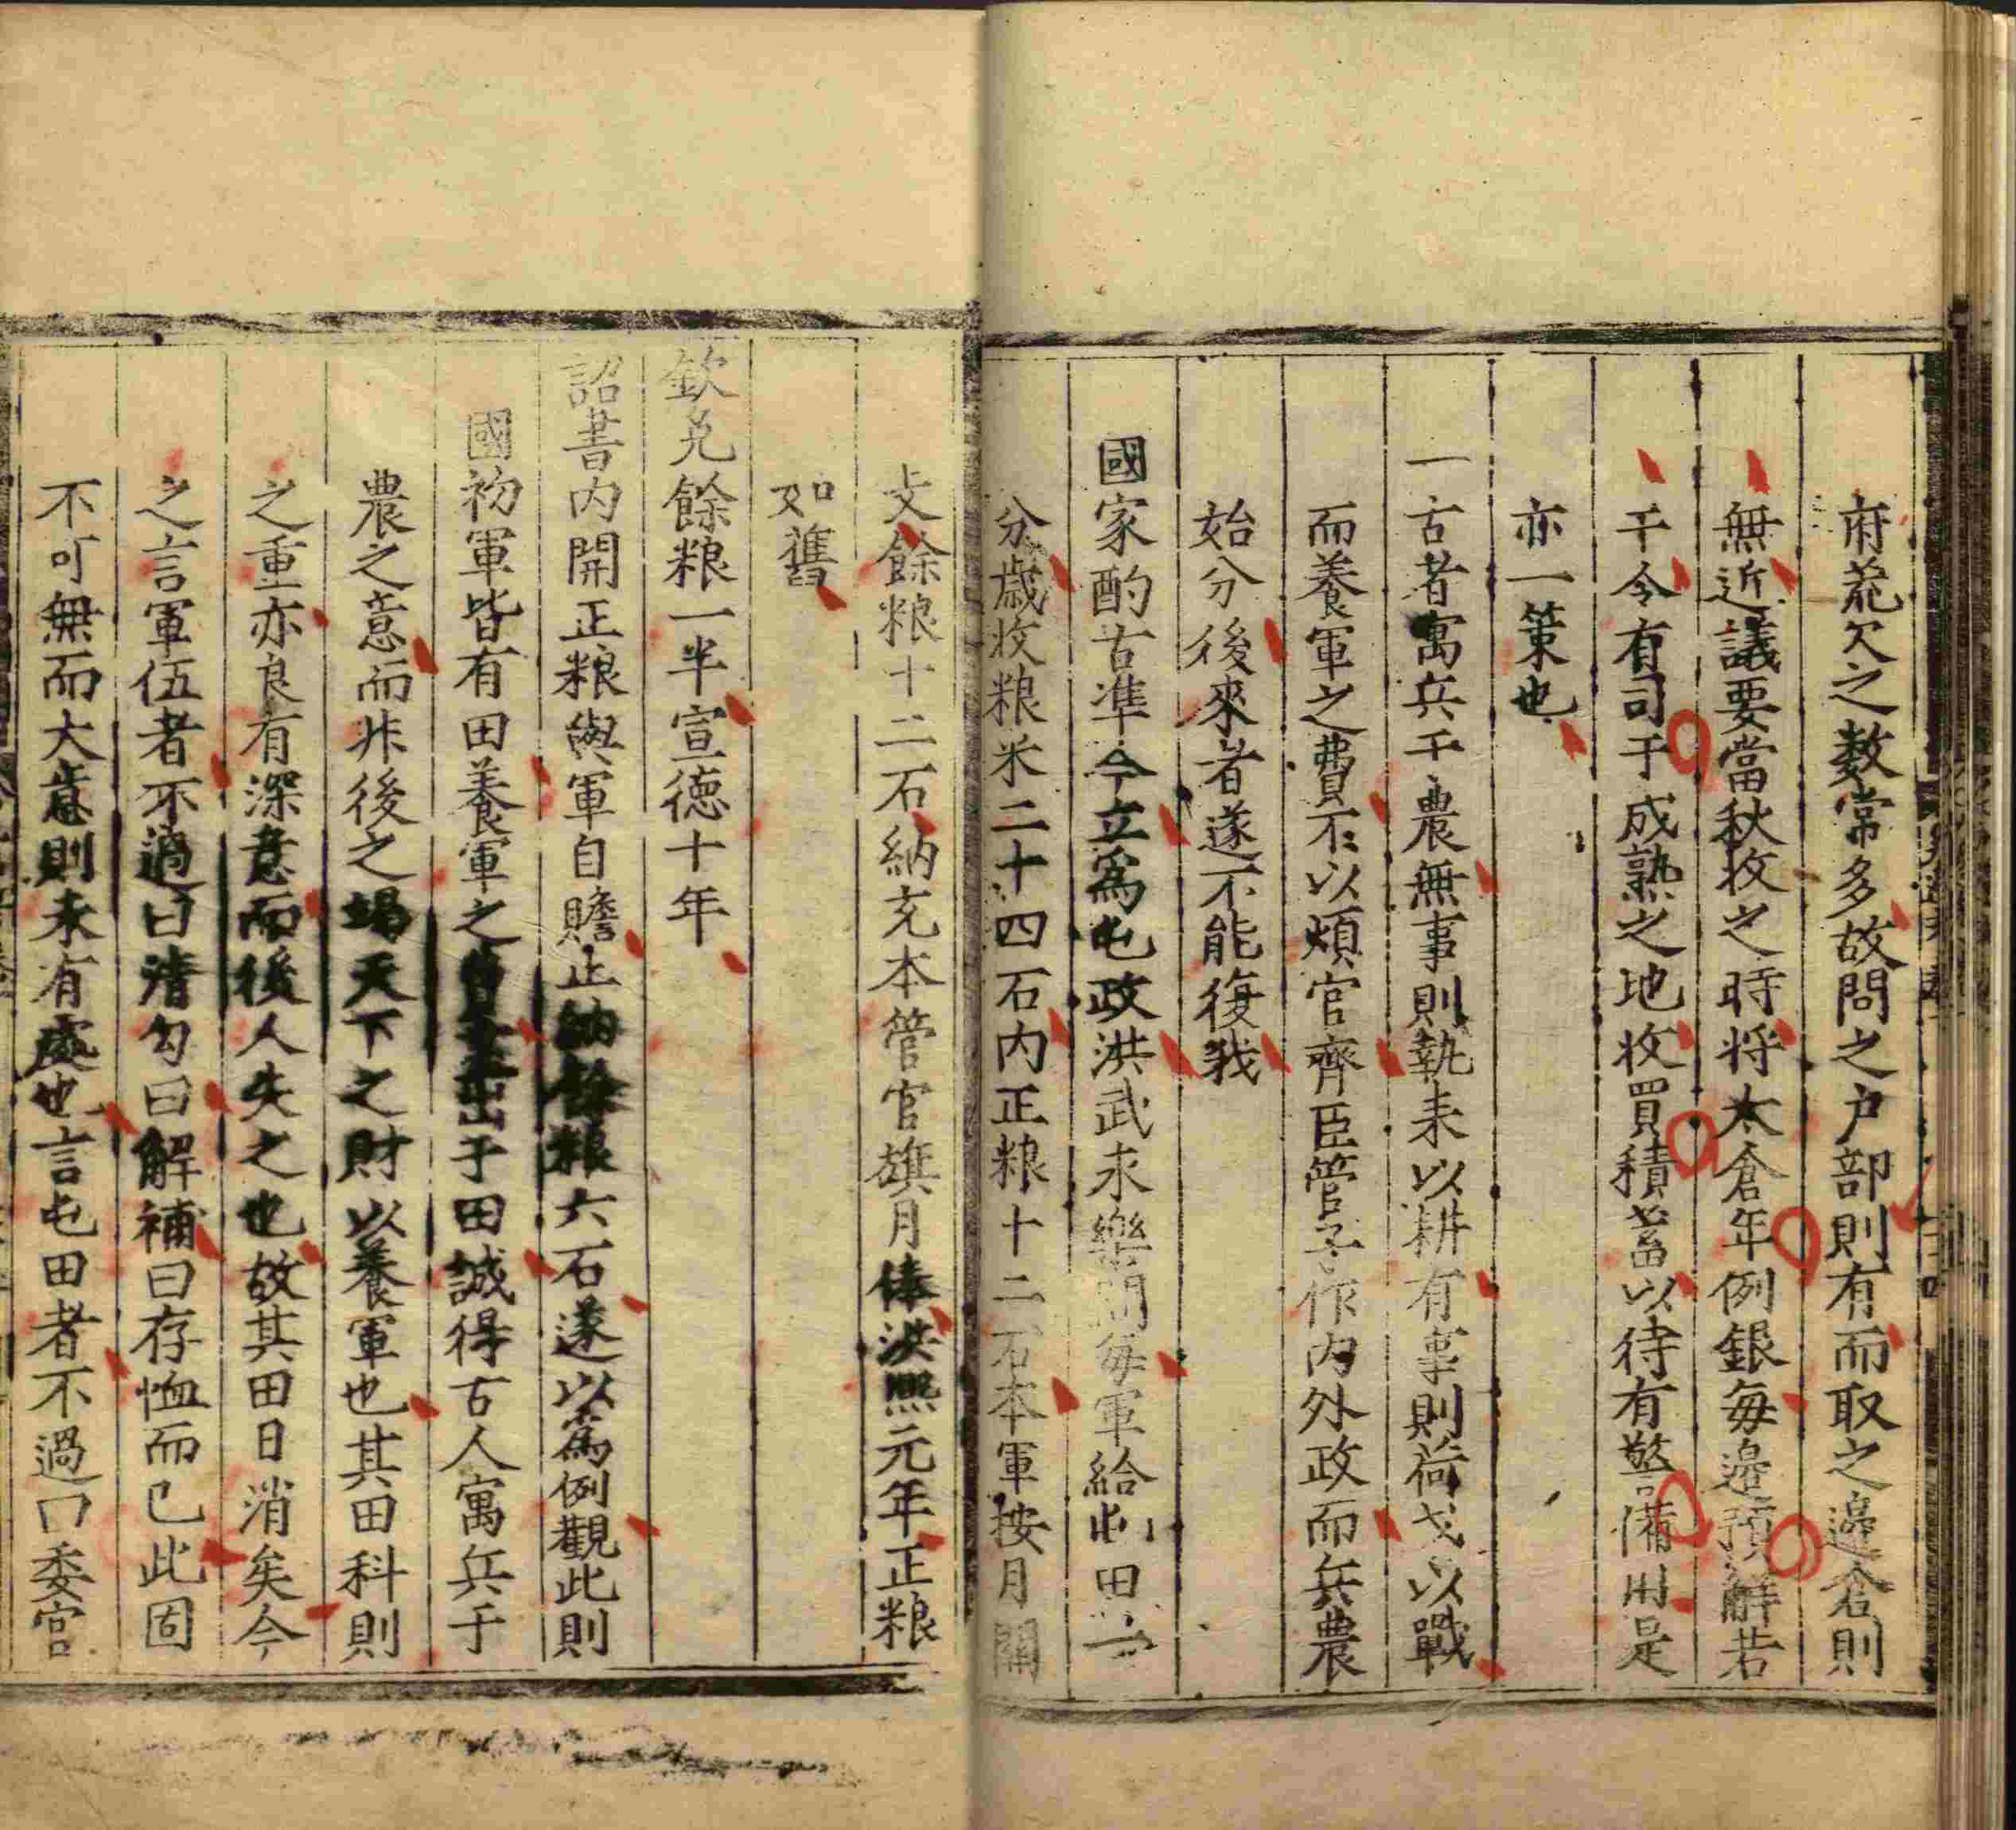 府荒欠之数常多故問之户部則有而取之邉倉則
無近議要當秋收之時将太倉年例銀每邉預觧若
干令有司于成熟之地收買積蓄以待有警備用是
亦一策也
一古者寓兵于農無事則執耒以耕有事則荷戈以戰
而養軍之費不以煩官齊臣管子作内外政而兵農
始分後來者遂不能復我
國家酌古凖今立爲屯政洪武永樂間每軍給屯田一
分歳收粮米二十四石内正粮十二石本軍按月關
支餘粮十二石納充本管官旗月俸洪熙元年正粮
如舊
欽免餘粮一半宣德十年
詔書内開正粮與軍自贍止納餘粮六石遂以爲例觀此則
國初軍皆有田養軍之出于田誠得古人寓兵于
農之意而非後之竭天下之財以養軍也其田科則
之重亦良有深意而後人失之也故其田日消矣今
之言軍伍者不過曰清勾曰解補曰存恤而已此固
不可無而大意則未有處也言屯田者不過曰委官